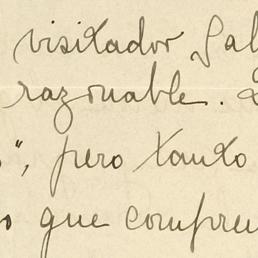 visitador Gal
razonable.
", pero tanto
que compren